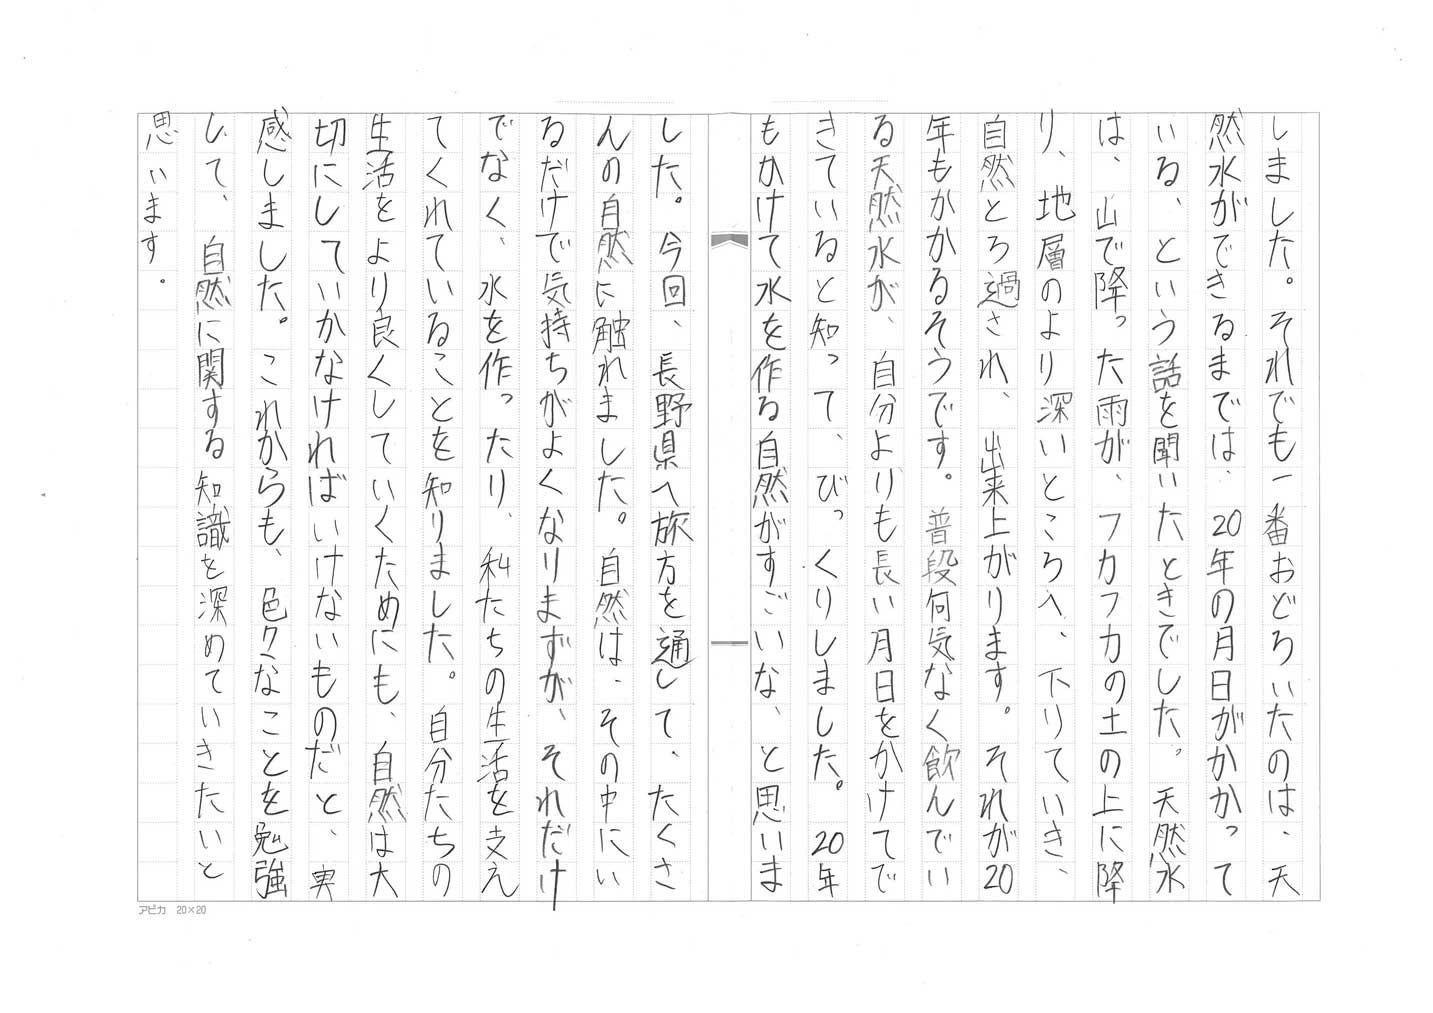 しました。それでも一番おどろいたのは、天
然水ができるまでは、20年の月日がかかって
いる、という話を聞いたときでした。天然水
は、山で降った雨が、フカフカの土の上に降
り、地層のより深いところへ、下りていき、
自然とろ過され、出来上がります。それが20
年もかかるそうです。普段何気なく飲んでい
る天然水が、自分よりも長い月日をかけてで
きていると知って、びっくりしました。20年
もかけて水を作る自然がすごいな、と思いま
した。今回、長野県へ旅方を通して、たくさ
んの自然に触れました。自然は、その中にい
るだけで気持ちがよくなりますが、それだけ
でなく、水を作ったり、私たちの生活を支え
てくれていることを知りました。自分たちの
生活をより良くしていくためにも、自然は大
切にしていかなければいけないものだと、実
感しました。これからも、色々なことを勉強
して、自然に関する知識を深めていきたいと
思います。
アピカ 20×20